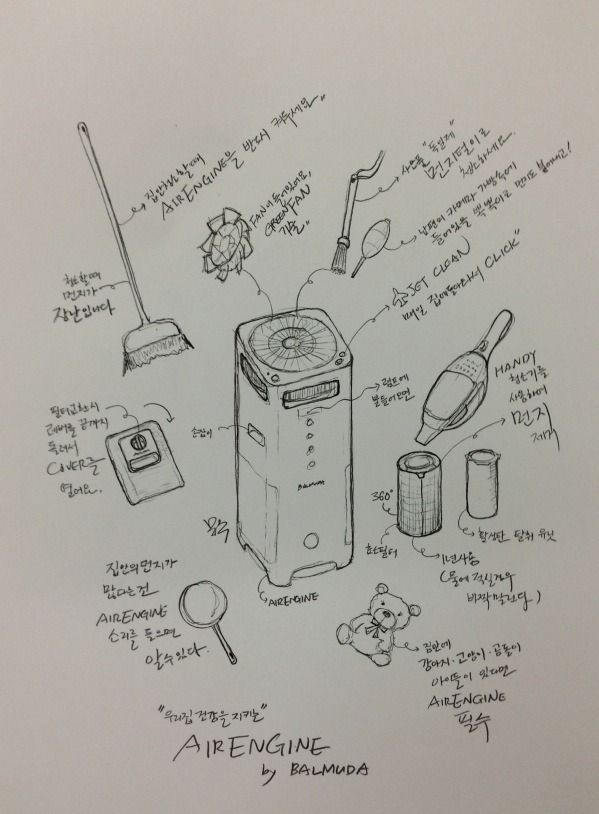 집안청소할때
AIRENGINE을 반드시 켜두세요"
FAN이 들어있어요,
GREEN FAN
기술"
사은품 "독일제"
먼지털이로
청소하세요.
남편의 카메라 가방속에
들어있을 뽁뽁이로 먼지도 불어내고!
JET CLEAN
매일 집에돌아와서 CLICK"
청소할때
먼지가
장난입니다
HANDY
청소기를
사용하여
먼지
제거
램프에
불들어오면
손잡이
필터교환시
레버를 끝까지
돌려서
COVER를
열어요.
BALMUDA
360°
효소필터
1년사용
(물에 적실경우
바짝말린다.)
활성탄 탈취 유닛
AIRENGINE
집안의 먼지가
많다는건
AIRENGINE
소리를 들으면
알수있다.
집안에
강아지·고양이·곰돌이
아이들이 있다면
AIRENGINE
필수
"우리집 건강을 지키는"
AIRENGINE
by BALMUDA